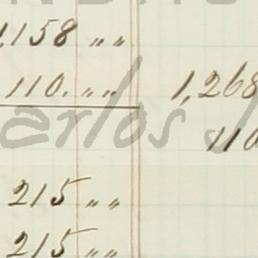 1,158 „ „
110. „ „ 1,268
110
215 „ „
215 „ „